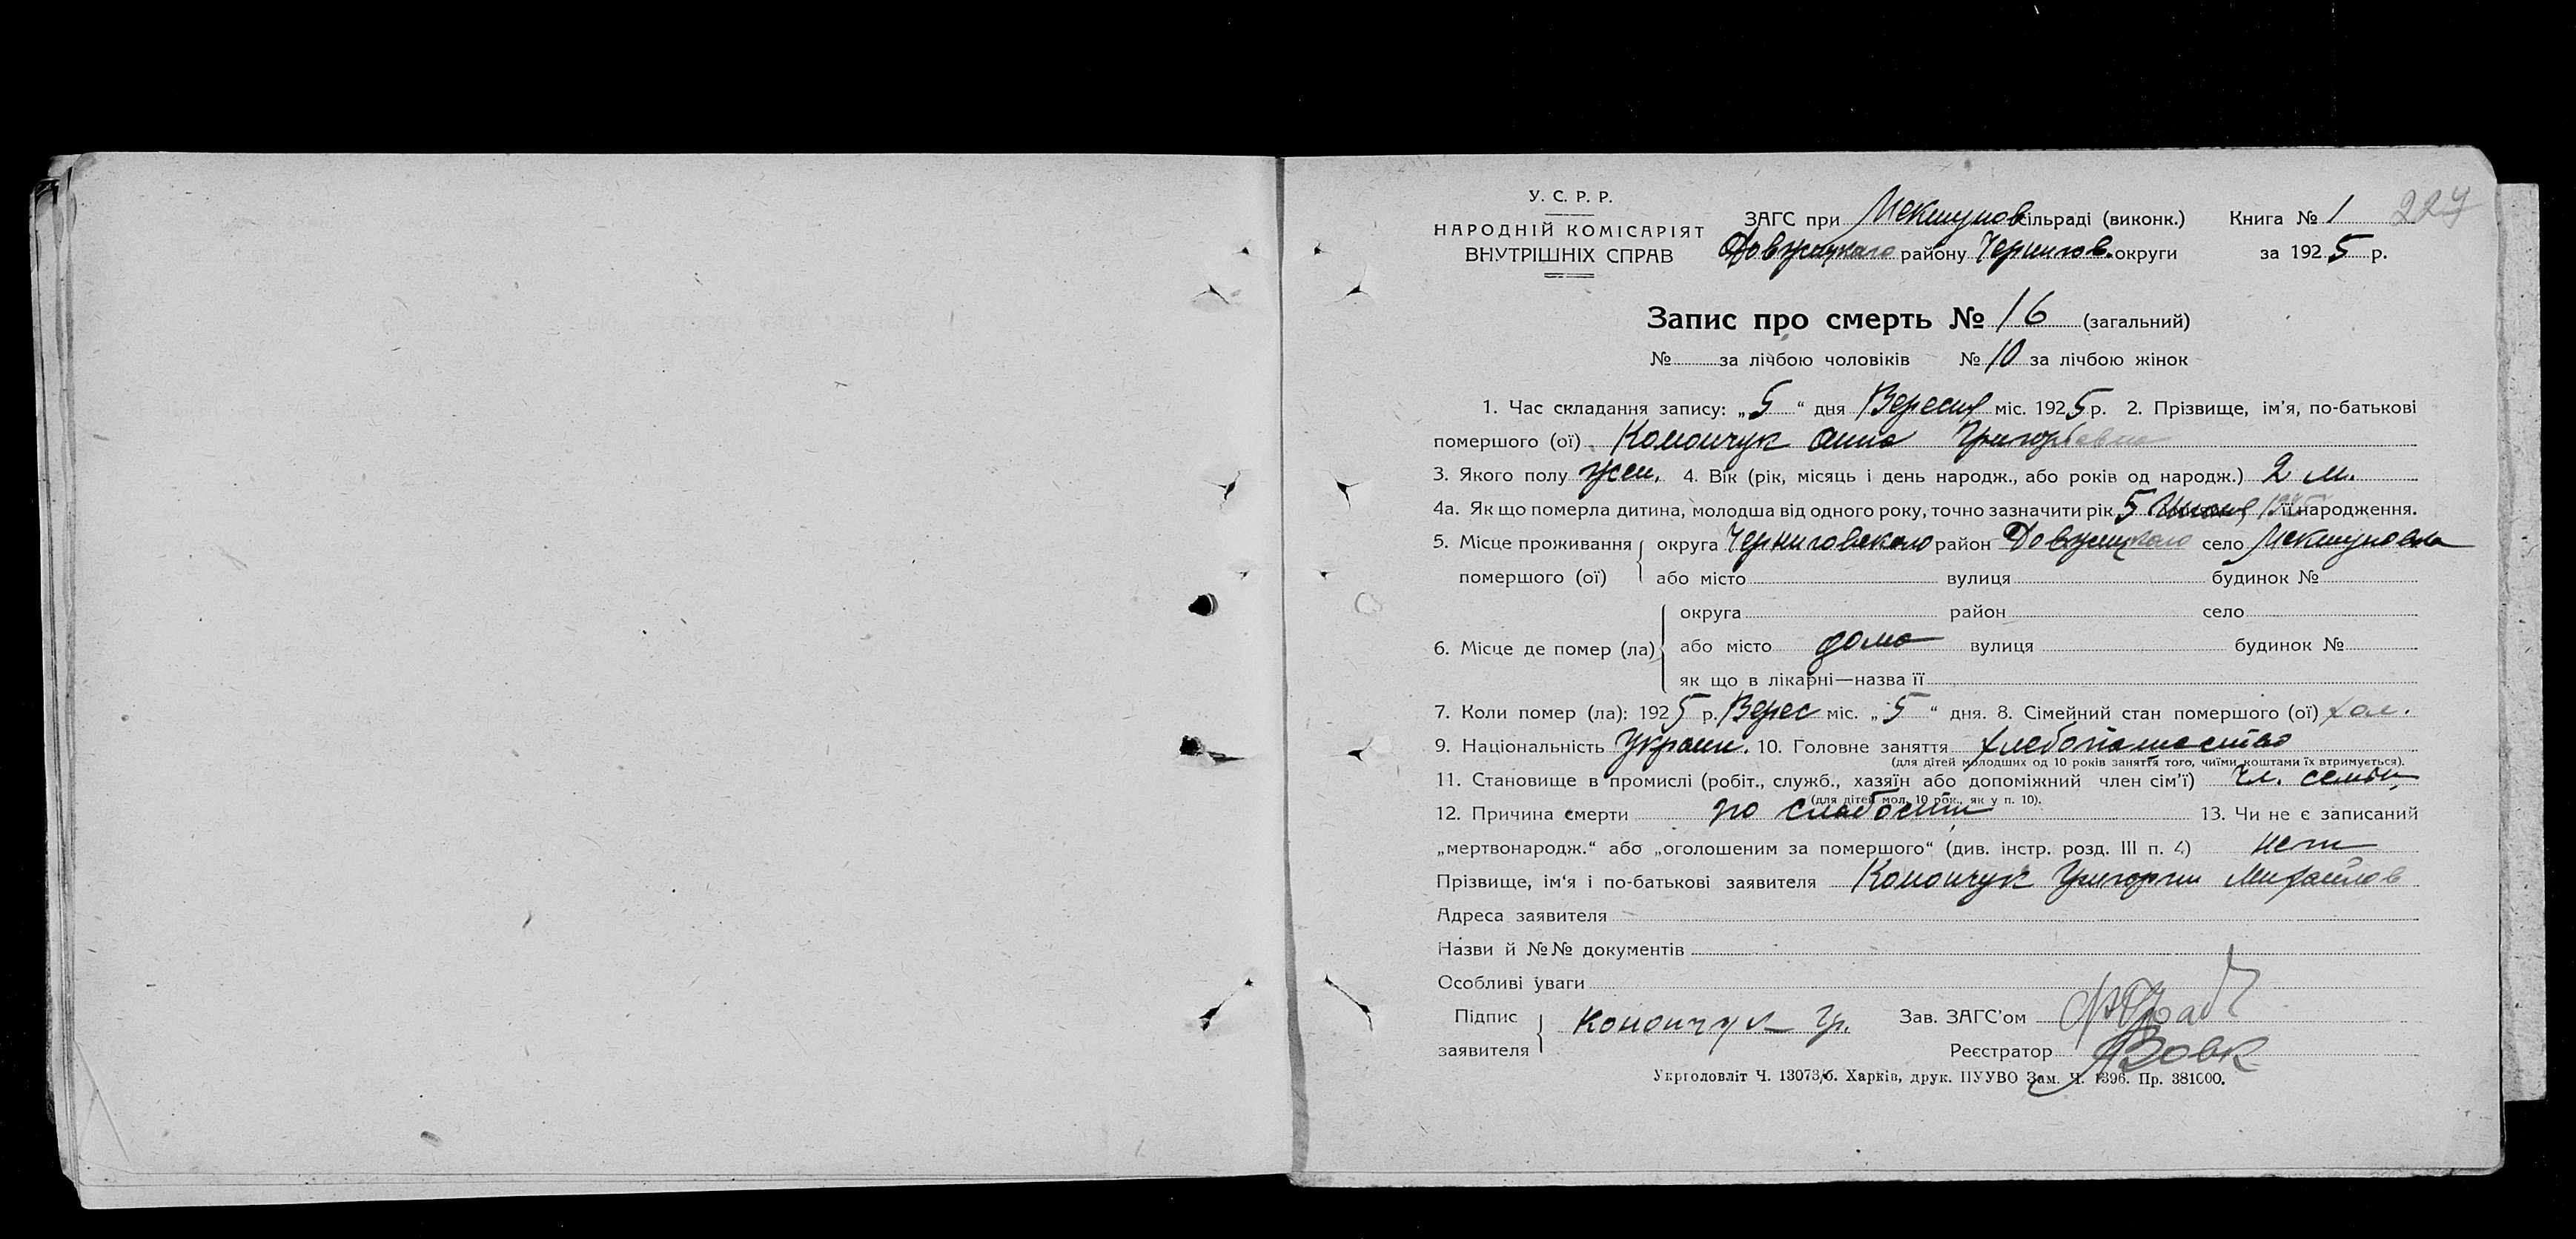 У. С. Р. Р.
НАРОДНІЙ КОМІСАРІЯТ
ВНУТРІШНІХ СПРАВ
ЗАГС при сільраді (виконк.) Книга № 1 227
району Чернигов. округи за 1925 р.
Запис про смерть № 16 (загальний)
№ за лічбою чоловіків № 10 за лічбою жінок
1. Час складання запису: „5“ дня Вересня міс. 1925 р. 2. Прізвище, ім'я, по-батькові
помершого (ої) Конончук Анна Григорьевна
3. Якого полу жен. 4. Вік (рік, місяць і день народж., або років од народж.) 2 м.
4а. Як що померла дитина, молодша від одного року, точно зазначити рік 5 її народження.
5. Місце проживання помершого (ої) округа Черниговского район село
або місто вулиця будинок №
6. Місце де помер (ла) округа район село
або місто дома вулиця будинок №
як що в лікарні—назва її
7. Коли помер (ла): 1925 р. Верес міс. „5“ дня. 8. Сімейний стан помершого (ої) хол.
9. Національність Украин. 10. Головне заняття хлебопашество
(для дітей молодших од 10 років заняття того, чиїми коштами їх втримується).
11. Становище в промислі (робіт., служб., хазяїн або допоміжний член сім'ї) чл. семьи
(для дітей мол. 10 рок., як у п. 10).
12. Причина смерти по слабости 13. Чи не є записаний
„мертвонародж.“ або „оголошеним за помершого“ (див. інстр. розд. III п. 4) нет
Прізвище, ім'я і по-батькові заявителя Конончук Григорий Михайлов
Адреса заявителя
Назви й №№ документів
Особливі уваги
Підпис заявителя Конончук Гр. Зав. ЗАГС'ом
Реєстратор Вовк
Укрголовліт Ч. 13073/б. Харків, друк. ПУУВО Зам. Ч. 1396. Пр. 381000.